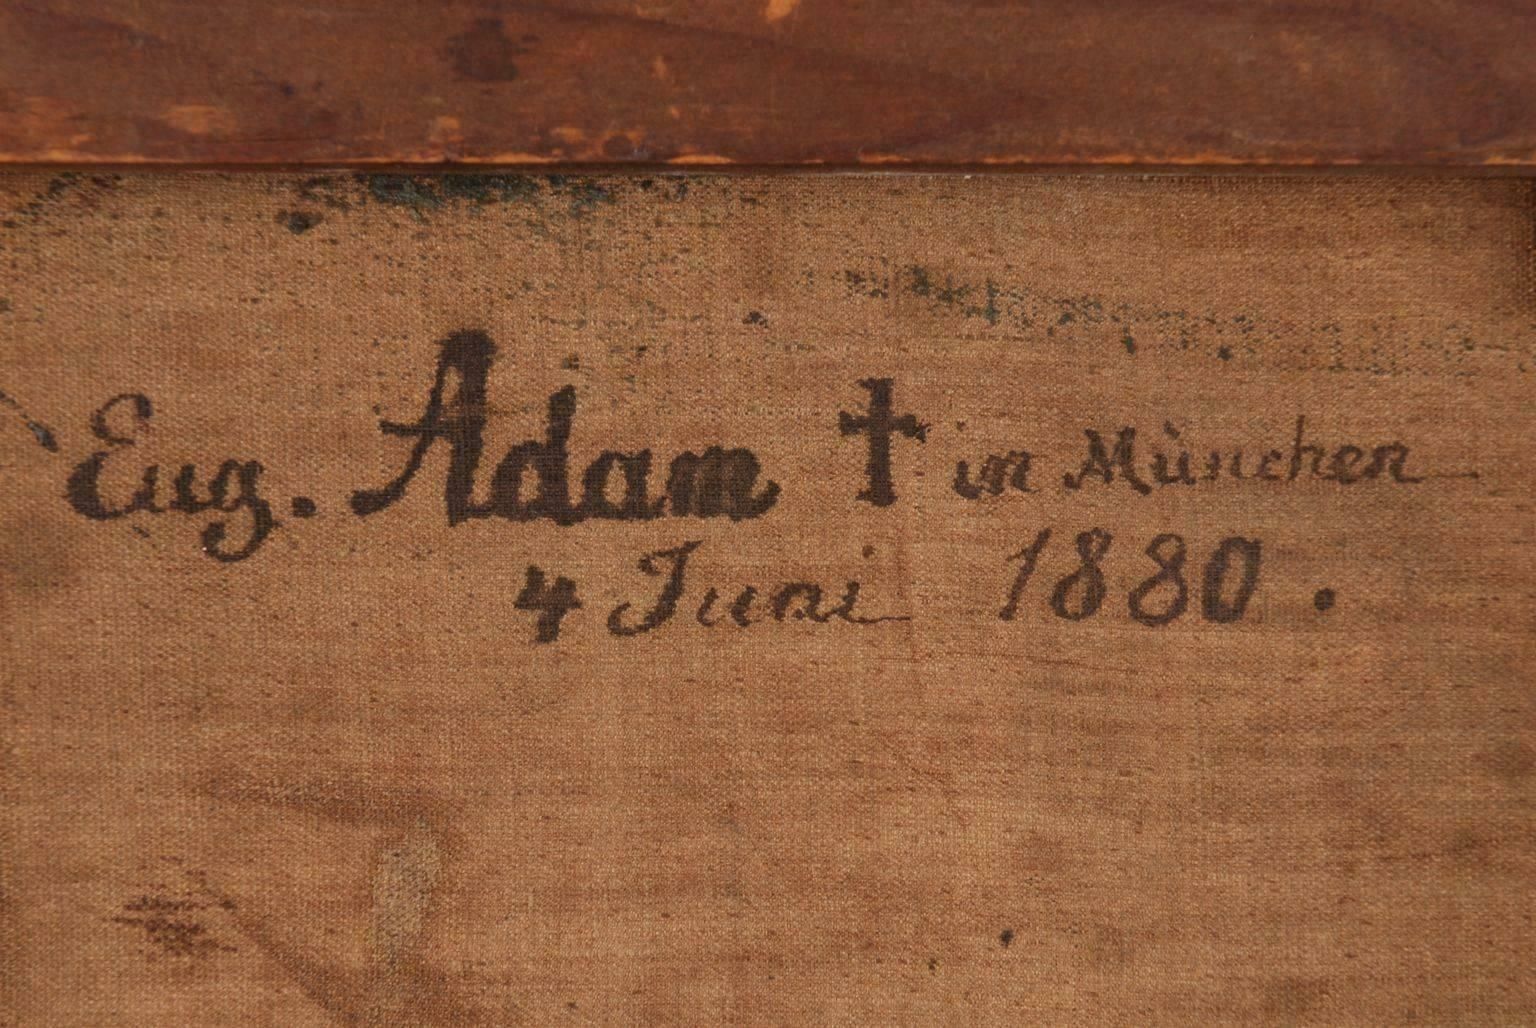 Eug. Adam † in München
4 Juni 1880.